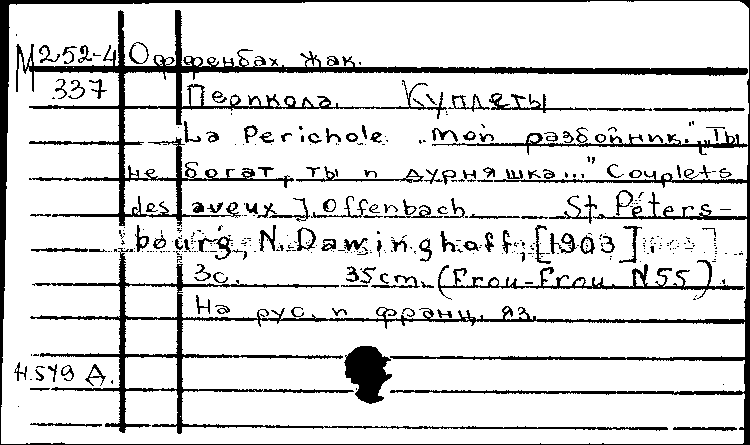 М252-4 Оффенбах, Жак.
337 Перикола. Куплеты
La Perichole „Мой разбойник.", „Ты
не богат, ты и дурняшка..." Couplets
des aveux J. Offenbach. St. Péters-
bourg, N. Dawinghoff, [1903]
3с. 35cm. (Frou-Frou. N55).
На рус. и франц. яз.
Н.579 Д.